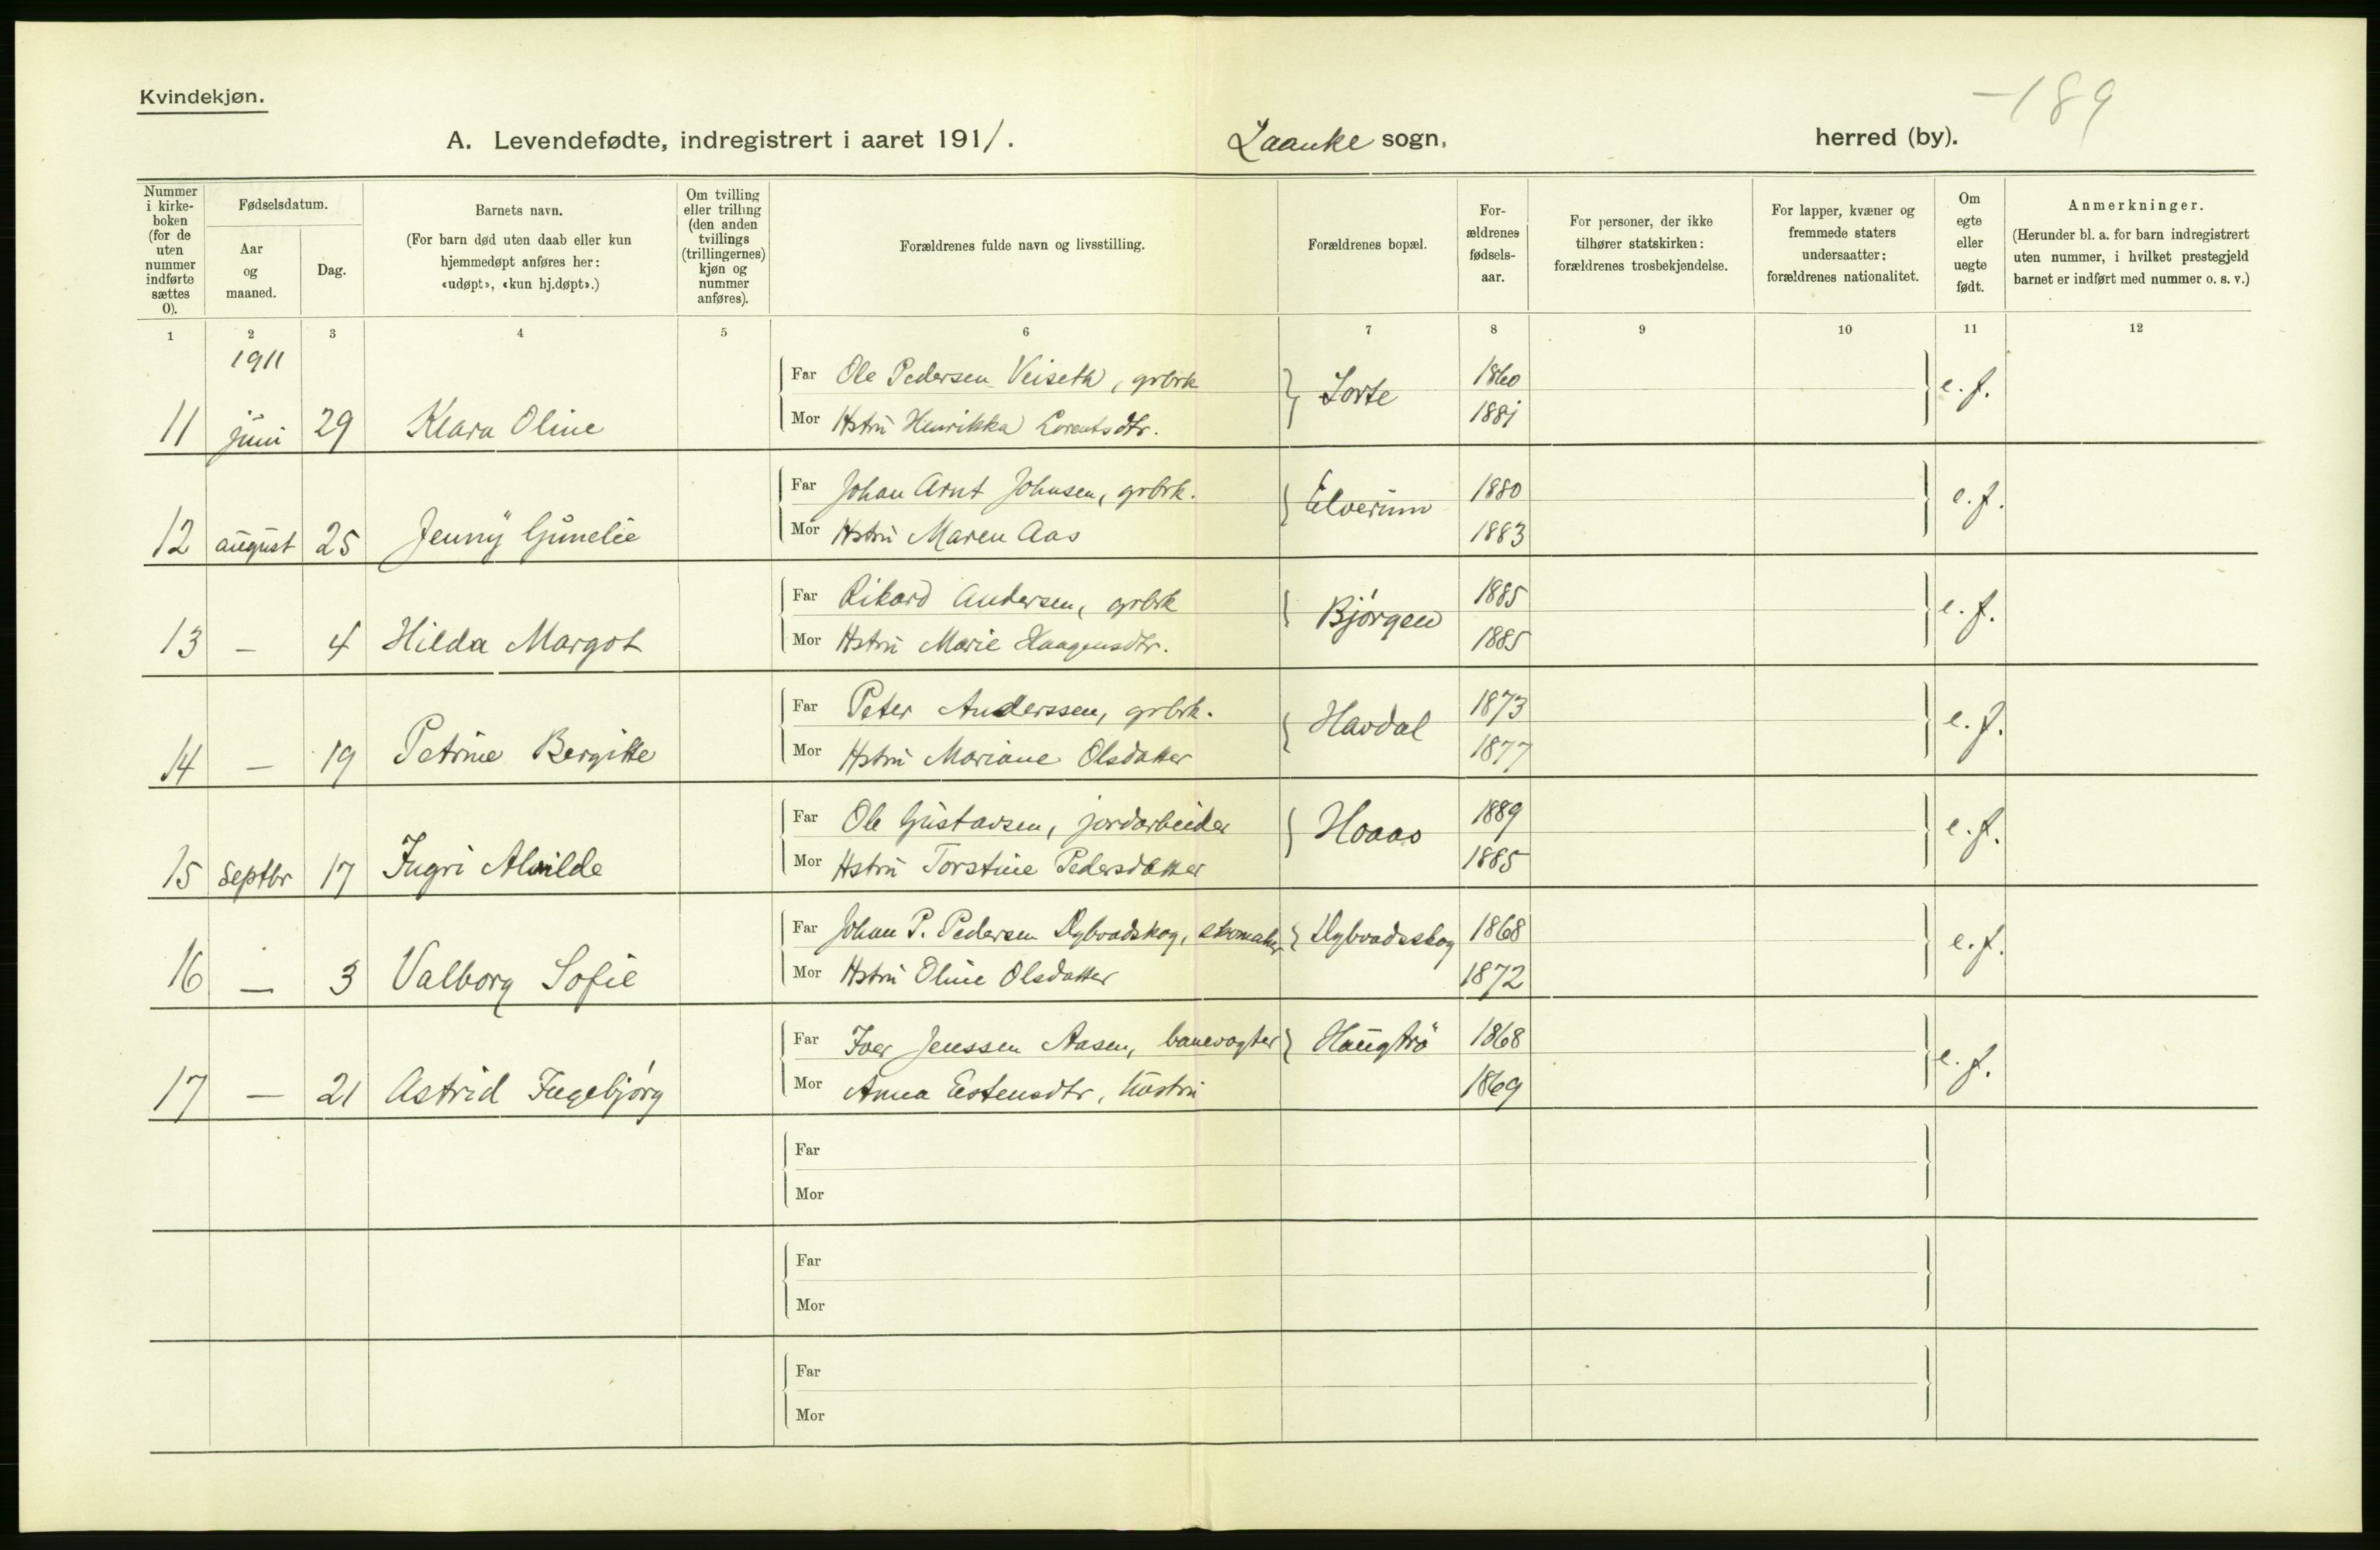 Kvindekjøn.
-189
A. Levendefødte, indregistrert i aaret 1911. Laanke sogn, herred (by).
Nummer i kirke-boken (for de uten nummer indførte sættes 0).
Fødselsdatum.
Aar og maaned.
Dag.
Barnets navn.
(For barn død uten daab eller kun hjemmedøpt anføres her: «udøpt», «kun hj.døpt».)
Om tvilling eller trilling (den anden tvillings (trillingernes) kjøn og nummer anføres).
Forældrenes fulde navn og livsstilling.
Forældrenes bopæl.
For-ældrenes fødsels-aar.
For personer, der ikke tilhører statskirken: forældrenes trosbekjendelse.
For lapper, kvæner og fremmede staters undersaatter: forældrenes nationalitet.
Om egte eller uegte født.
Anmerkninger.
(Herunder bl. a. for barn indregistrert uten nummer, i hvilket prestegjeld barnet er indført med nummer o. s. v.)
1 2 3 4 5 6 7 8 9 10 11 12
1911
Far Ole Pedersen Veiseth, grbrk Lorte 1860 e. f.
11 juni 29 Klara Oline Mor Hstru Henrikka Lorentsdtr. 1881
Far Johan Arnt Johnsen, grbrk. Elverum 1880 e. f.
12 august 25 Jenny Gunelie Mor Hstru Maren Aas 1883
Far Rikard Andersen, grbrk Bjørgen 1885 e. f.
13 — 4 Hilda Margot Mor Hstru Marie Haagensdtr. 1885
Far Peter Anderssen, grbrk. Havdal 1873 e. f.
14 — 19 Petrine Bergitte Mor Hstru Mariane Olsdatter 1877
Far Ole Gustavsen, jordarbeider Hoaas 1889 e. f.
15 Septbr 17 Ingri Alvilde Mor Hstru Torstine Pedersdatter 1885
Far Johan P. Pedersen Dybvadskog, skomaker Dybvadsskog 1868 e. f.
16 — 3 Valborg Sofie Mor Hstru Oline Olsdatter 1872
Far Iver Jenssen Aasen, banevogter Haugtrö 1868 e. f.
17 — 21 Astrid Ingebjörg Mor Anna Estensdtr, hustru 1869
Far
Mor
Far
Mor
Far
Mor